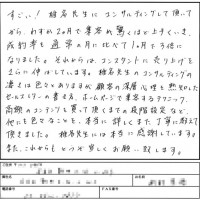 すごい！椎名先生にコンサルティングして頂いて
から、わずか2ヵ月で集客が驚くほど上手くいき、
成約率も通常の月に比べて10ヵ月で3倍に
なりました。それからは、コンスタントに売り上げを
さらに伸ばしています。椎名先生のコンサルティングの
凄さは色々ありますが顧客の深層心理を熟知した
セールスレターの書き方、ホームページで集客するテクニック、
高額のコンサルを買って頂くまでの段階設定など、
他にも色々なことを、本当に詳しくまた丁寧に教えて
頂きました。椎名先生には本当に感謝しています。
また、これからもどうぞ宜しくお願い致します。